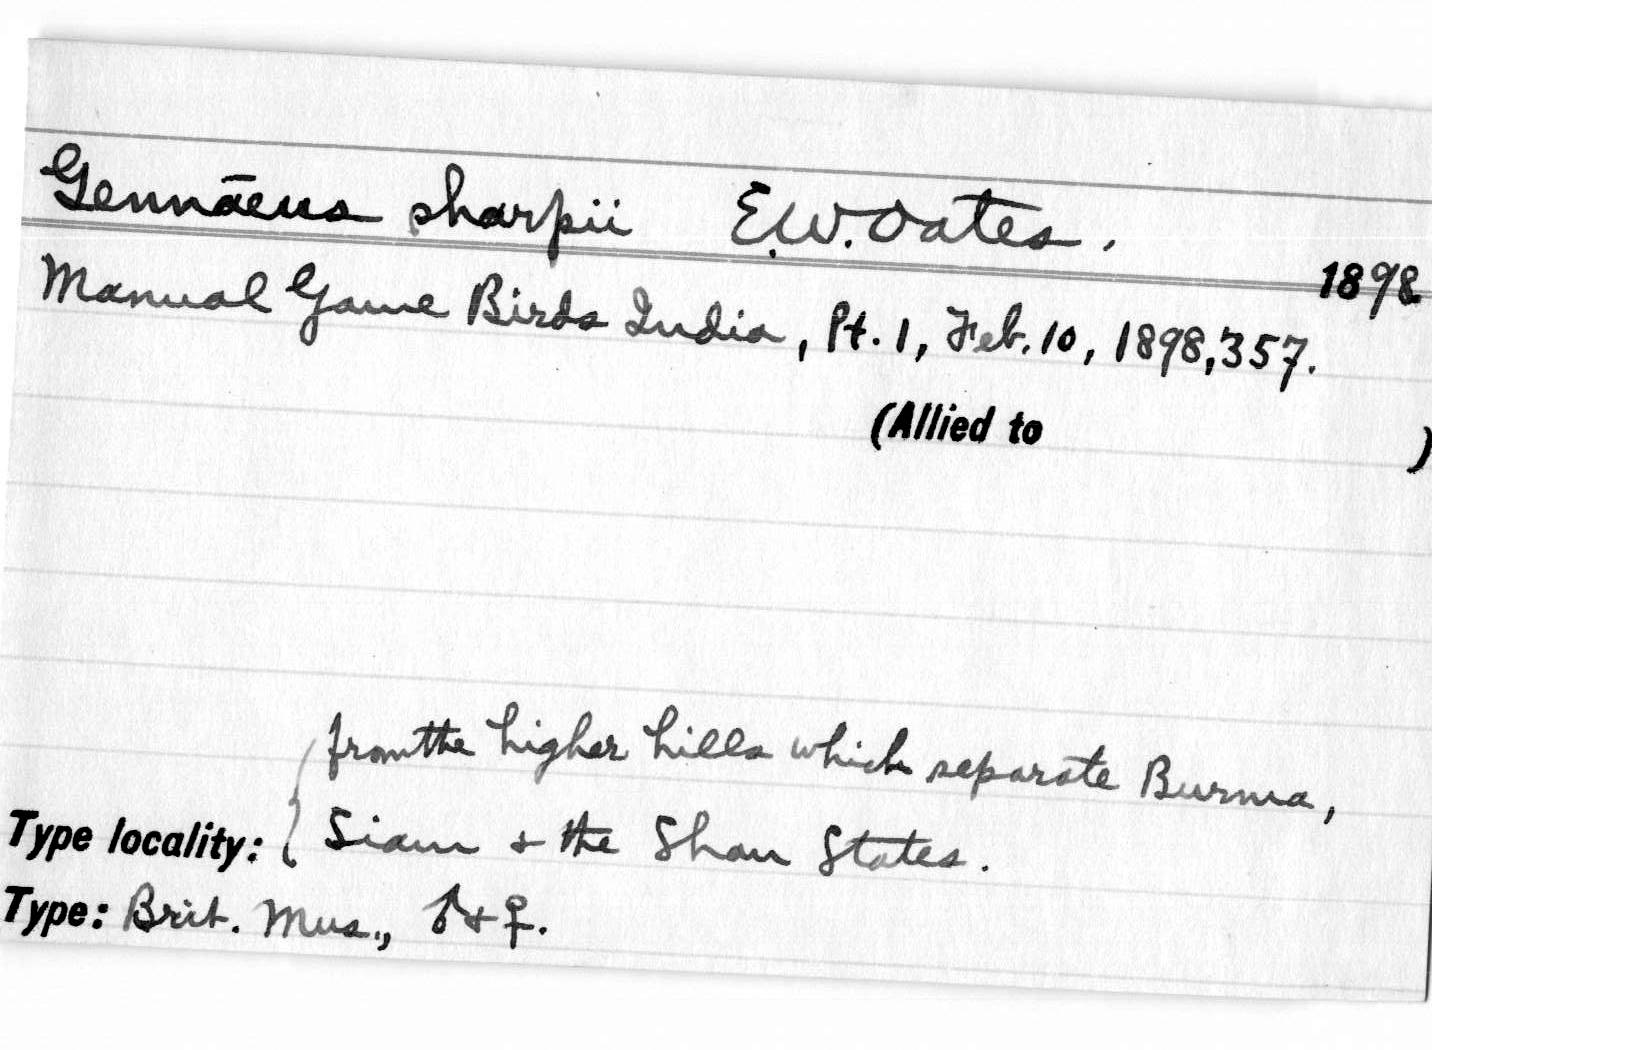 Gennāeus sharpii E.W. Oates.
1898
Manual Game Birds India, Pt. 1, Feb. 10, 1898, 357.
(Allied to )
from the higher hills which separate Burma,
Type locality: { Siam & the Shan States.
Type: Brit. Mus., ♂ & ♀.